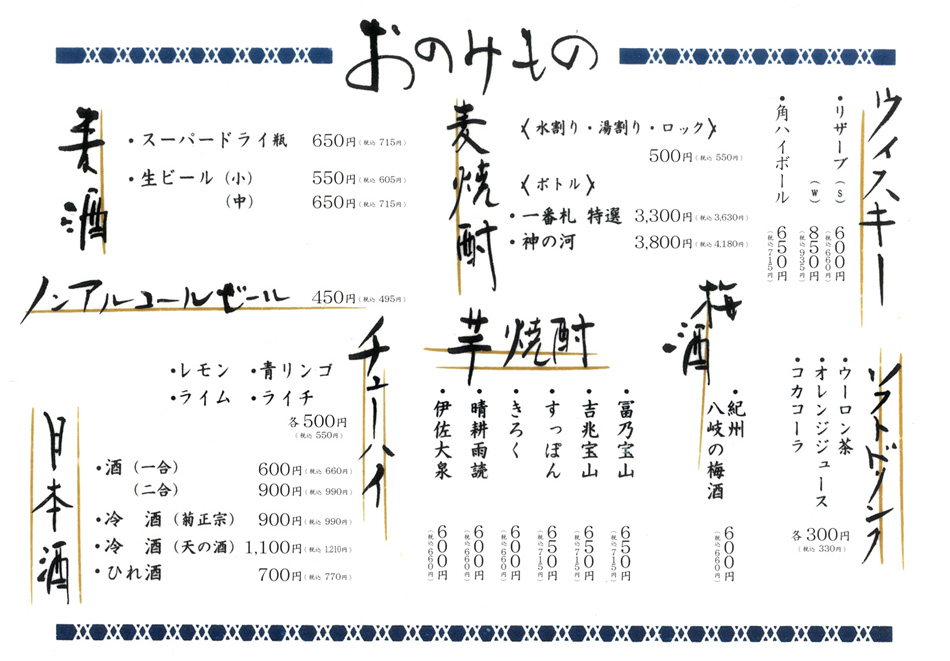 おのみもの
麦酒
・スーパードライ瓶 650円(税込 715円)
・生ビール(小) 550円(税込 605円)
(中) 650円(税込 715円)
ノンアルコールビール 450円(税込 495円)
チューハイ
・レモン ・青リンゴ
・ライム ・ライチ
各500円
(税込 550円)
日本酒
・酒(一合) 600円(税込 660円)
(二合) 900円(税込 990円)
・冷 酒(菊正宗) 900円(税込 990円)
・冷 酒(天の酒) 1,100円(税込 1,210円)
・ひれ酒 700円(税込 770円)
麦焼酎
〈水割り・湯割り・ロック〉
500円(税込 550円)
〈ボトル〉
・一番札 特選 3,300円(税込 3,630円)
・神の河 3,800円(税込 4,180円)
ウィスキー
・リザーブ(S) 600円(税込660円)
(W) 850円(税込935円)
・角ハイボール 650円(税込715円)
芋焼酎
・冨乃宝山 650円(税込715円)
・吉兆宝山 650円(税込715円)
・すっぽん 650円(税込715円)
・きろく 600円(税込660円)
・晴耕雨読 600円(税込660円)
・伊佐大泉 600円(税込660円)
梅酒
・紀州
八岐の梅酒 600円(税込660円)
ソフトドリンク
・ウーロン茶
・オレンジジュース
・コカコーラ
各300円
(税込 330円)